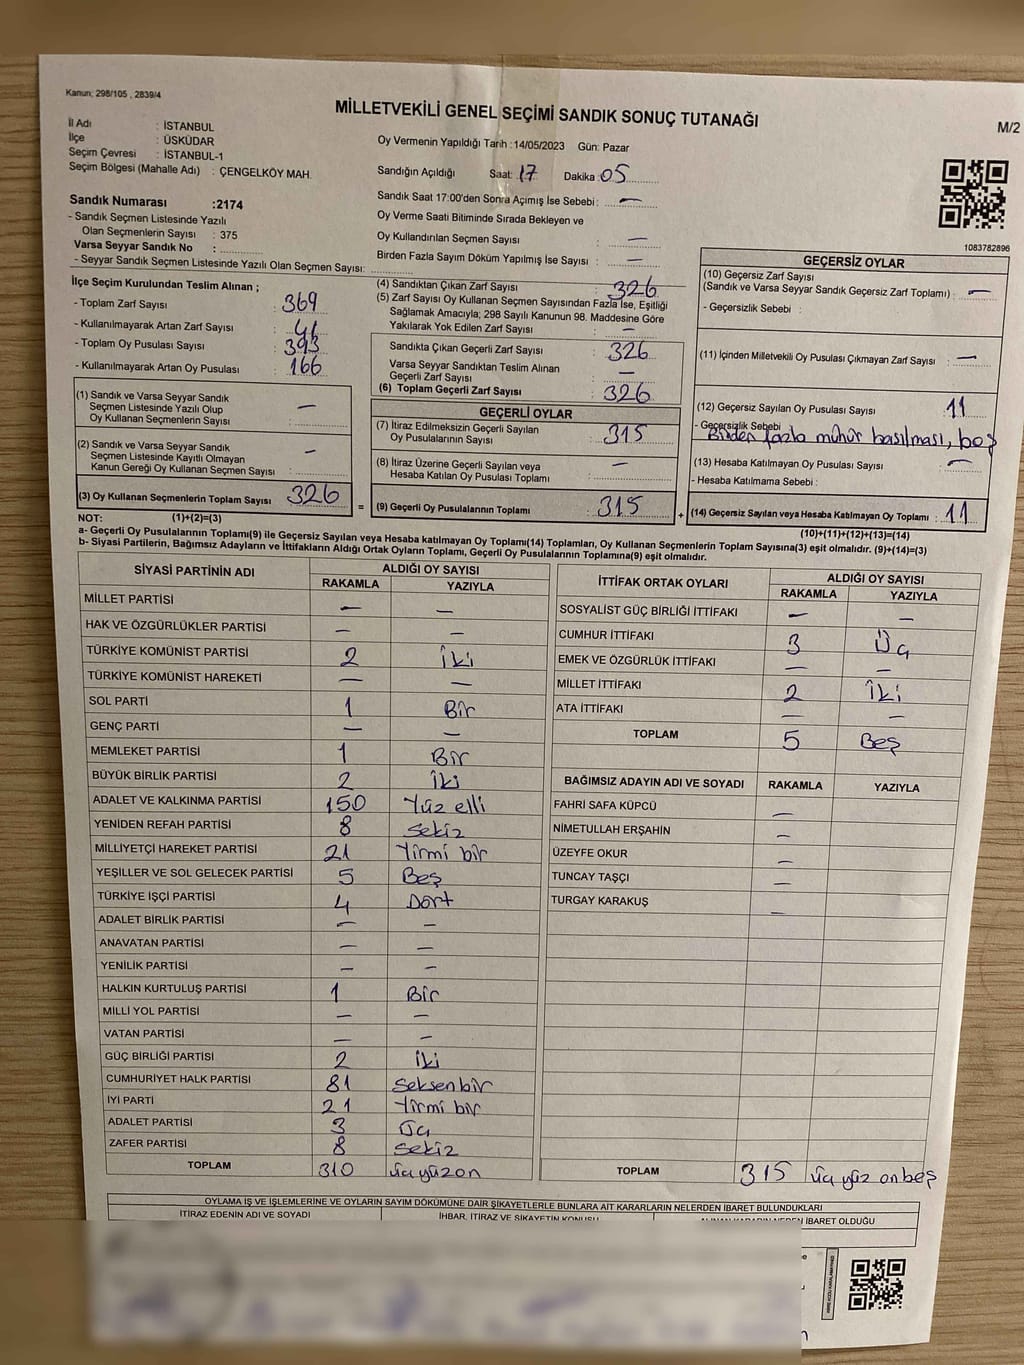 Kanun; 298/105 , 2839/4
MİLLETVEKİLİ GENEL SEÇİMİ SANDIK SONUÇ TUTANAĞI
M/2
İl Adı : İSTANBUL
İlçe : ÜSKÜDAR
Seçim Çevresi : İSTANBUL-1
Seçim Bölgesi (Mahalle Adı) : ÇENGELKÖY MAH.
Sandık Numarası :2174
- Sandık Seçmen Listesinde Yazılı
Olan Seçmenlerin Sayısı : 375
Varsa Seyyar Sandık No :
- Seyyar Sandık Seçmen Listesinde Yazılı Olan Seçmen Sayısı:
Oy Vermenin Yapıldığı Tarih :14/05/2023 Gün: Pazar
Sandığın Açıldığı Saat: 17 Dakika: 05
Sandık Saat 17:00'den Sonra Açımış İse Sebebi : —
Oy Verme Saati Bitiminde Sırada Bekleyen ve
Oy Kullandırılan Seçmen Sayısı : —
Birden Fazla Sayım Döküm Yapılmış İse Sayısı : —
1083782896
İlçe Seçim Kurulundan Teslim Alınan ;
- Toplam Zarf Sayısı : 369
- Kullanılmayarak Artan Zarf Sayısı :
- Toplam Oy Pusulası Sayısı : 393
- Kullanılmayarak Artan Oy Pusulası : 166
(1) Sandık ve Varsa Seyyar Sandık
Seçmen Listesinde Yazılı Olup
Oy Kullanan Seçmenlerin Sayısı : —
(2) Sandık ve Varsa Seyyar Sandık
Seçmen Listesinde Kayıtlı Olmayan
Kanun Gereği Oy Kullanan Seçmen Sayısı : —
(3) Oy Kullanan Seçmenlerin Toplam Sayısı : 326
(4) Sandıktan Çıkan Zarf Sayısı : 326
(5) Zarf Sayısı Oy Kullanan Seçmen Sayısından Fazla İse, Eşitliği
Sağlamak Amacıyla; 298 Sayılı Kanunun 98. Maddesine Göre
Yakılarak Yok Edilen Zarf Sayısı : —
Sandıkta Çıkan Geçerli Zarf Sayısı : 326
Varsa Seyyar Sandıktan Teslim Alınan
Geçerli Zarf Sayısı : —
(6) Toplam Geçerli Zarf Sayısı : 326
GEÇERLİ OYLAR
(7) İtiraz Edilmeksizin Geçerli Sayılan
Oy Pusulalarının Sayısı : 315
(8) İtiraz Üzerine Geçerli Sayılan veya
Hesaba Katılan Oy Pusulası Toplamı : —
= (9) Geçerli Oy Pusulalarının Toplamı : 315
GEÇERSİZ OYLAR
(10) Geçersiz Zarf Sayısı
(Sandık ve Varsa Seyyar Sandık Geçersiz Zarf Toplamı) : —
- Geçersizlik Sebebi :
(11) İçinden Milletvekili Oy Pusulası Çıkmayan Zarf Sayısı : —
(12) Geçersiz Sayılan Oy Pusulası Sayısı : 11
- Geçersizlik Sebebi
Birden fazla mühür basılması, boş
(13) Hesaba Katılmayan Oy Pusulası Sayısı : —
- Hesaba Katılmama Sebebi :
+ (14) Geçersiz Sayılan veya Hesaba Katılmayan Oy Toplamı : 11
NOT: (1)+(2)=(3)
(10)+(11)+(12)+(13)=(14)
a- Geçerli Oy Pusulalarının Toplamı(9) ile Geçersiz Sayılan veya Hesaba katılmayan Oy Toplamı(14) Toplamları, Oy Kullanan Seçmenlerin Toplam Sayısına(3) eşit olmalıdır. (9)+(14)=(3)
b- Siyasi Partilerin, Bağımsız Adayların ve İttifakların Aldığı Ortak Oyların Toplamı, Geçerli Oy Pusulalarının Toplamına(9) eşit olmalıdır.
SİYASİ PARTİNİN ADI ALDIĞI OY SAYISI
RAKAMLA YAZIYLA
MİLLET PARTİSİ — —
HAK VE ÖZGÜRLÜKLER PARTİSİ — —
TÜRKİYE KOMÜNİST PARTİSİ 2 İki
TÜRKİYE KOMÜNİST HAREKETİ — —
SOL PARTİ 1 Bir
GENÇ PARTİ — —
MEMLEKET PARTİSİ 1 Bir
BÜYÜK BİRLİK PARTİSİ 2 İki
ADALET VE KALKINMA PARTİSİ 150 Yüz elli
YENİDEN REFAH PARTİSİ 8 Sekiz
MİLLİYETÇİ HAREKET PARTİSİ 21 Yirmi bir
YEŞİLLER VE SOL GELECEK PARTİSİ 5 Beş
TÜRKİYE İŞÇİ PARTİSİ 4 Dört
ADALET BİRLİK PARTİSİ — —
ANAVATAN PARTİSİ — —
YENİLİK PARTİSİ — —
HALKIN KURTULUŞ PARTİSİ 1 Bir
MİLLİ YOL PARTİSİ — —
VATAN PARTİSİ — —
GÜÇ BİRLİĞİ PARTİSİ 2 İki
CUMHURİYET HALK PARTİSİ 81 Seksen bir
İYİ PARTİ 21 Yirmi bir
ADALET PARTİSİ 3 Üç
ZAFER PARTİSİ 8 Sekiz
TOPLAM 310 üç yüz on
İTTİFAK ORTAK OYLARI ALDIĞI OY SAYISI
RAKAMLA YAZIYLA
SOSYALİST GÜÇ BİRLİĞİ İTTİFAKI — —
CUMHUR İTTİFAKI 3 Üç
EMEK VE ÖZGÜRLÜK İTTİFAKI — —
MİLLET İTTİFAKI 2 İki
ATA İTTİFAKI — —
TOPLAM 5 Beş
BAĞIMSIZ ADAYIN ADI VE SOYADI RAKAMLA YAZIYLA
FAHRİ SAFA KÜPCÜ —
NİMETULLAH ERŞAHİN —
ÜZEYFE OKUR —
TUNCAY TAŞÇI —
TURGAY KARAKUŞ —
TOPLAM 315 üç yüz on beş
OYLAMA İŞ VE İŞLEMLERİNE VE OYLARIN SAYIM DÖKÜMÜNE DAİR ŞİKAYETLERLE BUNLARA AİT KARARLARIN NELERDEN İBARET BULUNDUKLARI
İTİRAZ EDENİN ADI VE SOYADI İHBAR, İTİRAZ VE ŞİKAYETİN KONUSU ALINAN KARARIN NEDEN İBARET OLDUĞU